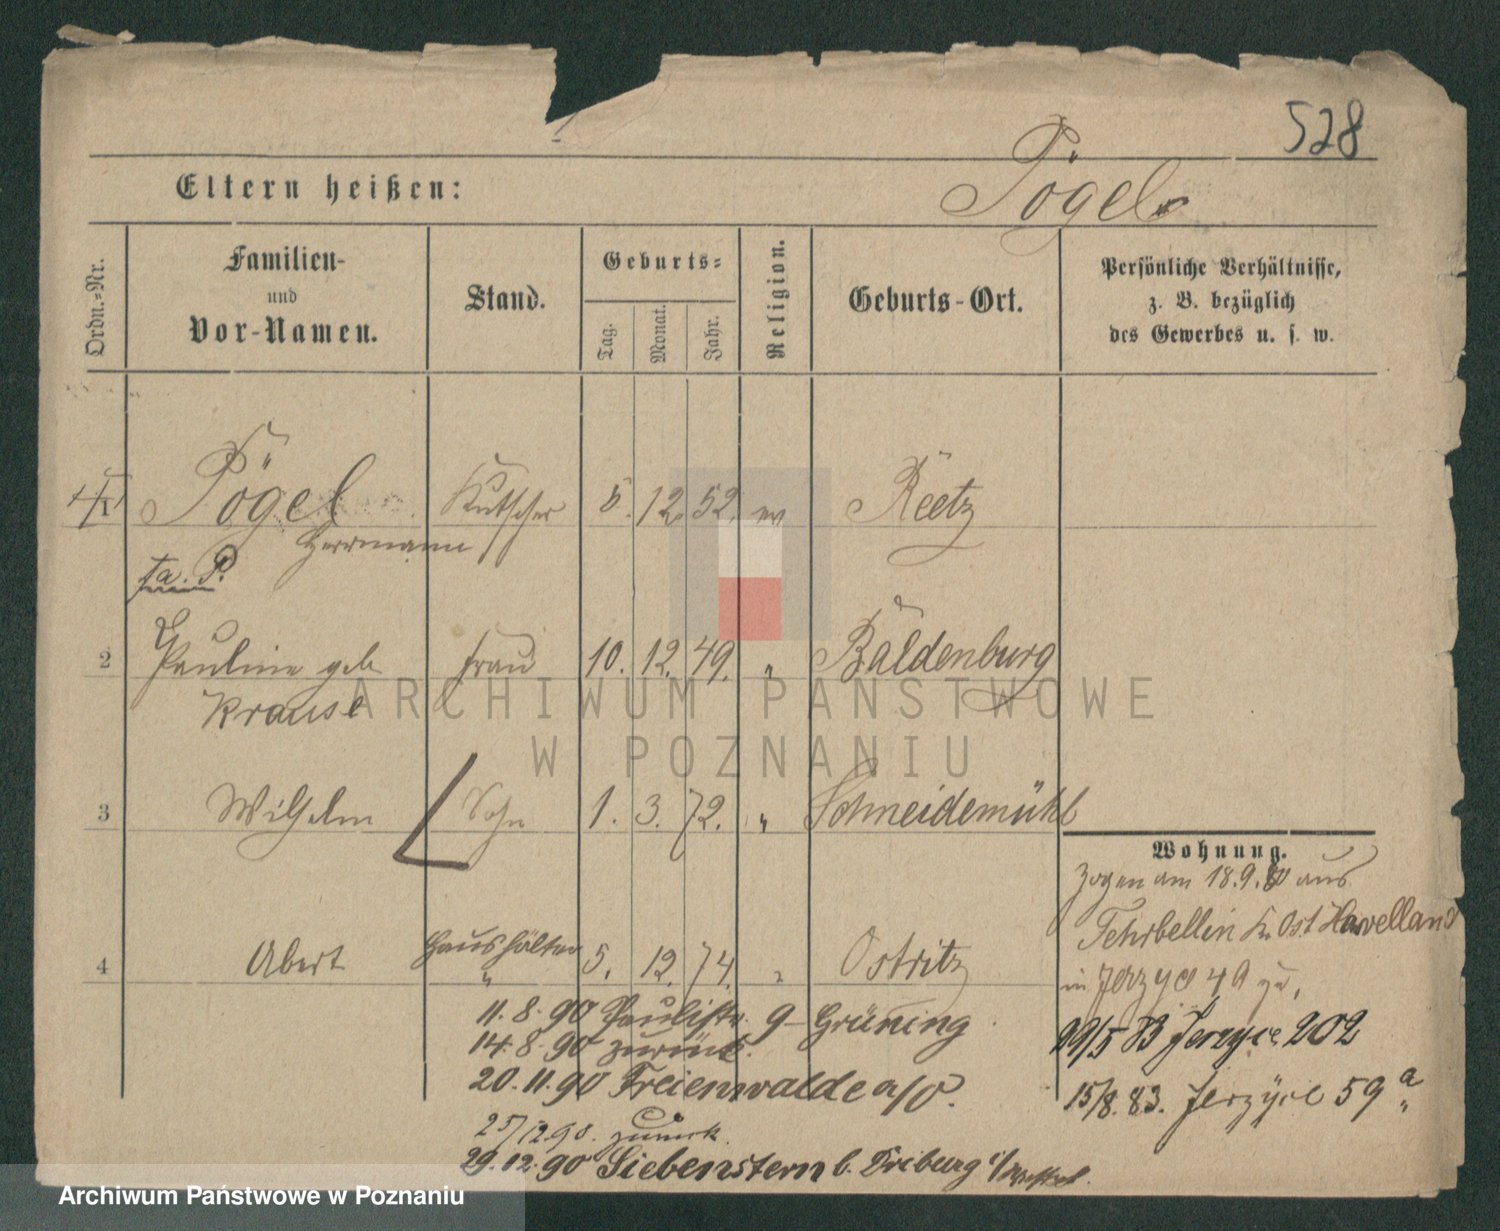 528
Eltern heißen:
Pögel
Ordn.-Nr.
Familien-
und
Vor-Namen.
Stand.
Geburts-
Tag.
Monat.
Jahr.
Religion.
Geburts-Ort.
Persönliche Verhältnisse,
z. B. bezüglich
des Gewerbes u. s. w.
1 Pögel Kutscher 5. 12. 52. ev Reetz
Herrmann
2 Pauline geb Frau 10. 12. 49. " Baldenburg
Krause
3 Wilhelm Sohn 1. 3. 72. " Schneidemühl
4 Abert Haushälter 5. 12. 74. " Ostritz
"
Wohnung.
Zogen am 18.9. aus
Fehrbellin Kr. Ost Havelland
in Jerzyce 49 zu,
29/5 83 Jerzyce 202
15/8. 83. Jerzyce 59 a
11. 8. 90 Paulistr. 9 - Grüning
14. 8. 90 zurück.
20. 11. 90 Freienwalde a/O.
25/12 90. zurück.
29. 12. 90 Siebenstern b. Driburg i/Westph.
ARCHIWUM PAŃSTWOWE
W POZNANIU
Archiwum Państwowe w Poznaniu